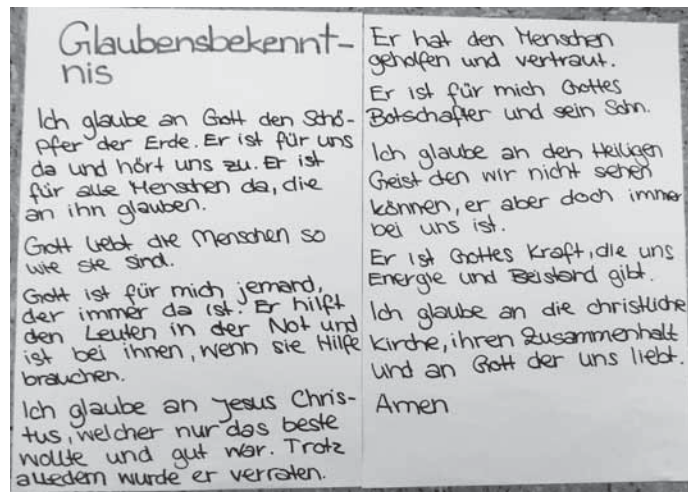 Glaubensbekennt-
nis
Ich glaube an Gott den Schö-
pfer der Erde. Er ist für uns
da und hört uns zu. Er ist
für alle Menschen da, die
an ihn glauben.
Gott liebt die Menschen so
wie sie sind.
Gott ist für mich jemand,
der immer da ist. Er hilft
den Leuten in der Not und
ist bei ihnen, wenn sie Hilfe
brauchen.
Ich glaube an Jesus Chris-
tus, welcher nur das beste
wollte und gut war. Trotz
alledem wurde er verraten.
Er hat den Menschen
geholfen und vertraut.
Er ist für mich Gottes
Botschafter und sein Sohn.
Ich glaube an den Heiligen
Geist den wir nicht sehen
können, er aber doch immer
bei uns ist.
Er ist Gottes Kraft, die uns
Energie und Beistand gibt.
Ich glaube an die christliche
Kirche, ihren Zusammenhalt
und an Gott der uns liebt.
Amen